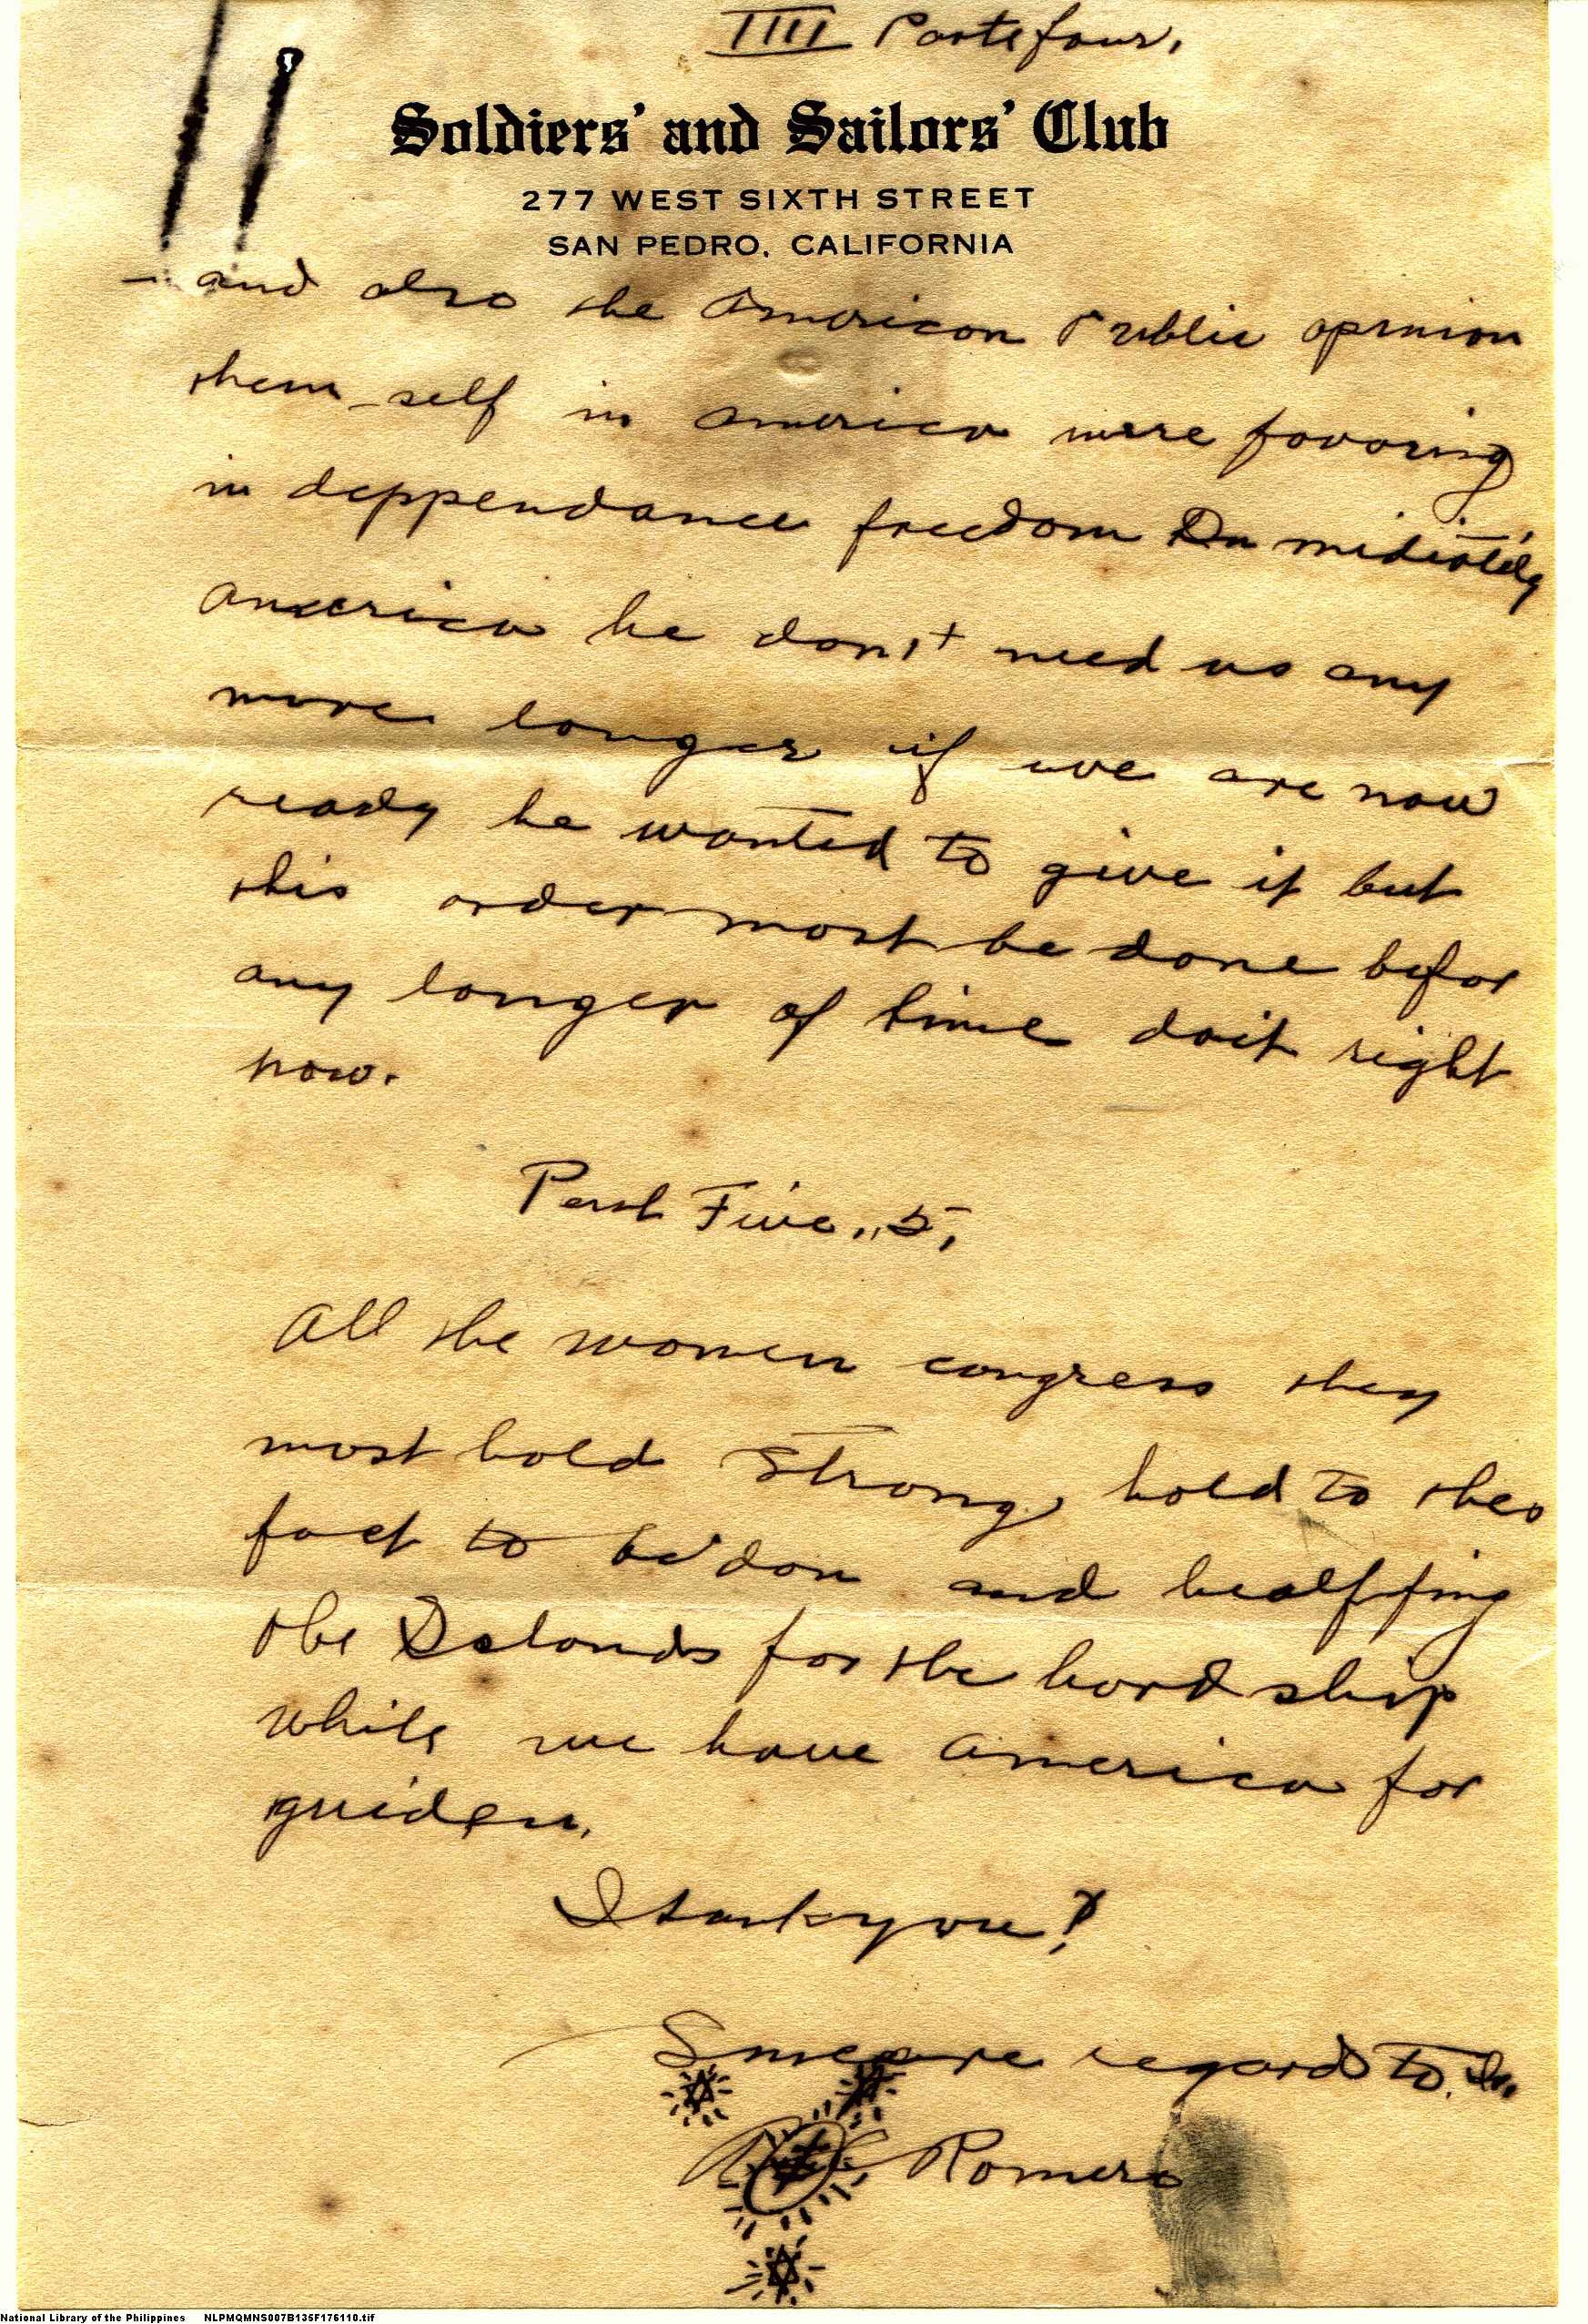 IIII Parte four,
Soldiers' and Sailors' Club
277 WEST SIXTH STREET
SAN PEDRO, CALIFORNIA
- and also the American Public opinion
them-self in america were favoring
in deppendance freedom Inmidiatelg
America he don't need us any
more longer if we are now
ready he wanted to give it but
this order most be done befor
any longer of time doit right
now.
Part Five,, 5,
All the women congress they
most hold Strong, hold to thes
fact to be don and healffing
the Islands for the hord ship
while we have America for
guiden.
I tankyou!
Sinceare regards to.
Romero
National Library of the Philippines NLPMQMNS007B135F176110.tif